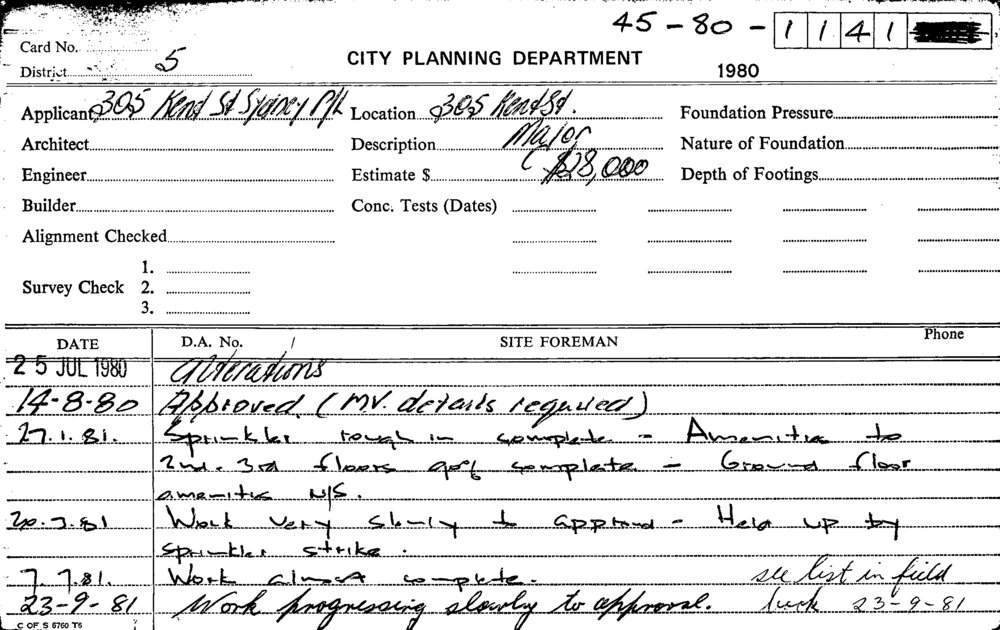 45-80-1141
Card No.
District 5
CITY PLANNING DEPARTMENT
1980
Applicant 305 Kent St Sydney P/L Location 305 Kent St. Foundation Pressure
Architect Description Major Nature of Foundation
Engineer Estimate $ $28,000 Depth of Footings
Builder Conc. Tests (Dates)
Alignment Checked
1.
Survey Check 2.
3.
DATE D.A. No. / SITE FOREMAN Phone
25 JUL 1980 Alterations
14-8-80 Approved (MV. details required)
27.1.81. Sprinkler rough in complete - Amenities to
2nd. 3rd floors 90% complete - Ground floor
amenities N/S.
20.3.81 Work very slowly to approval - Held up by
sprinkler strike.
7.7.81. Work almost complete. see list in field
23-9-81 Work progressing slowly to approval. book 23-9-81
C OF S 6760 T6